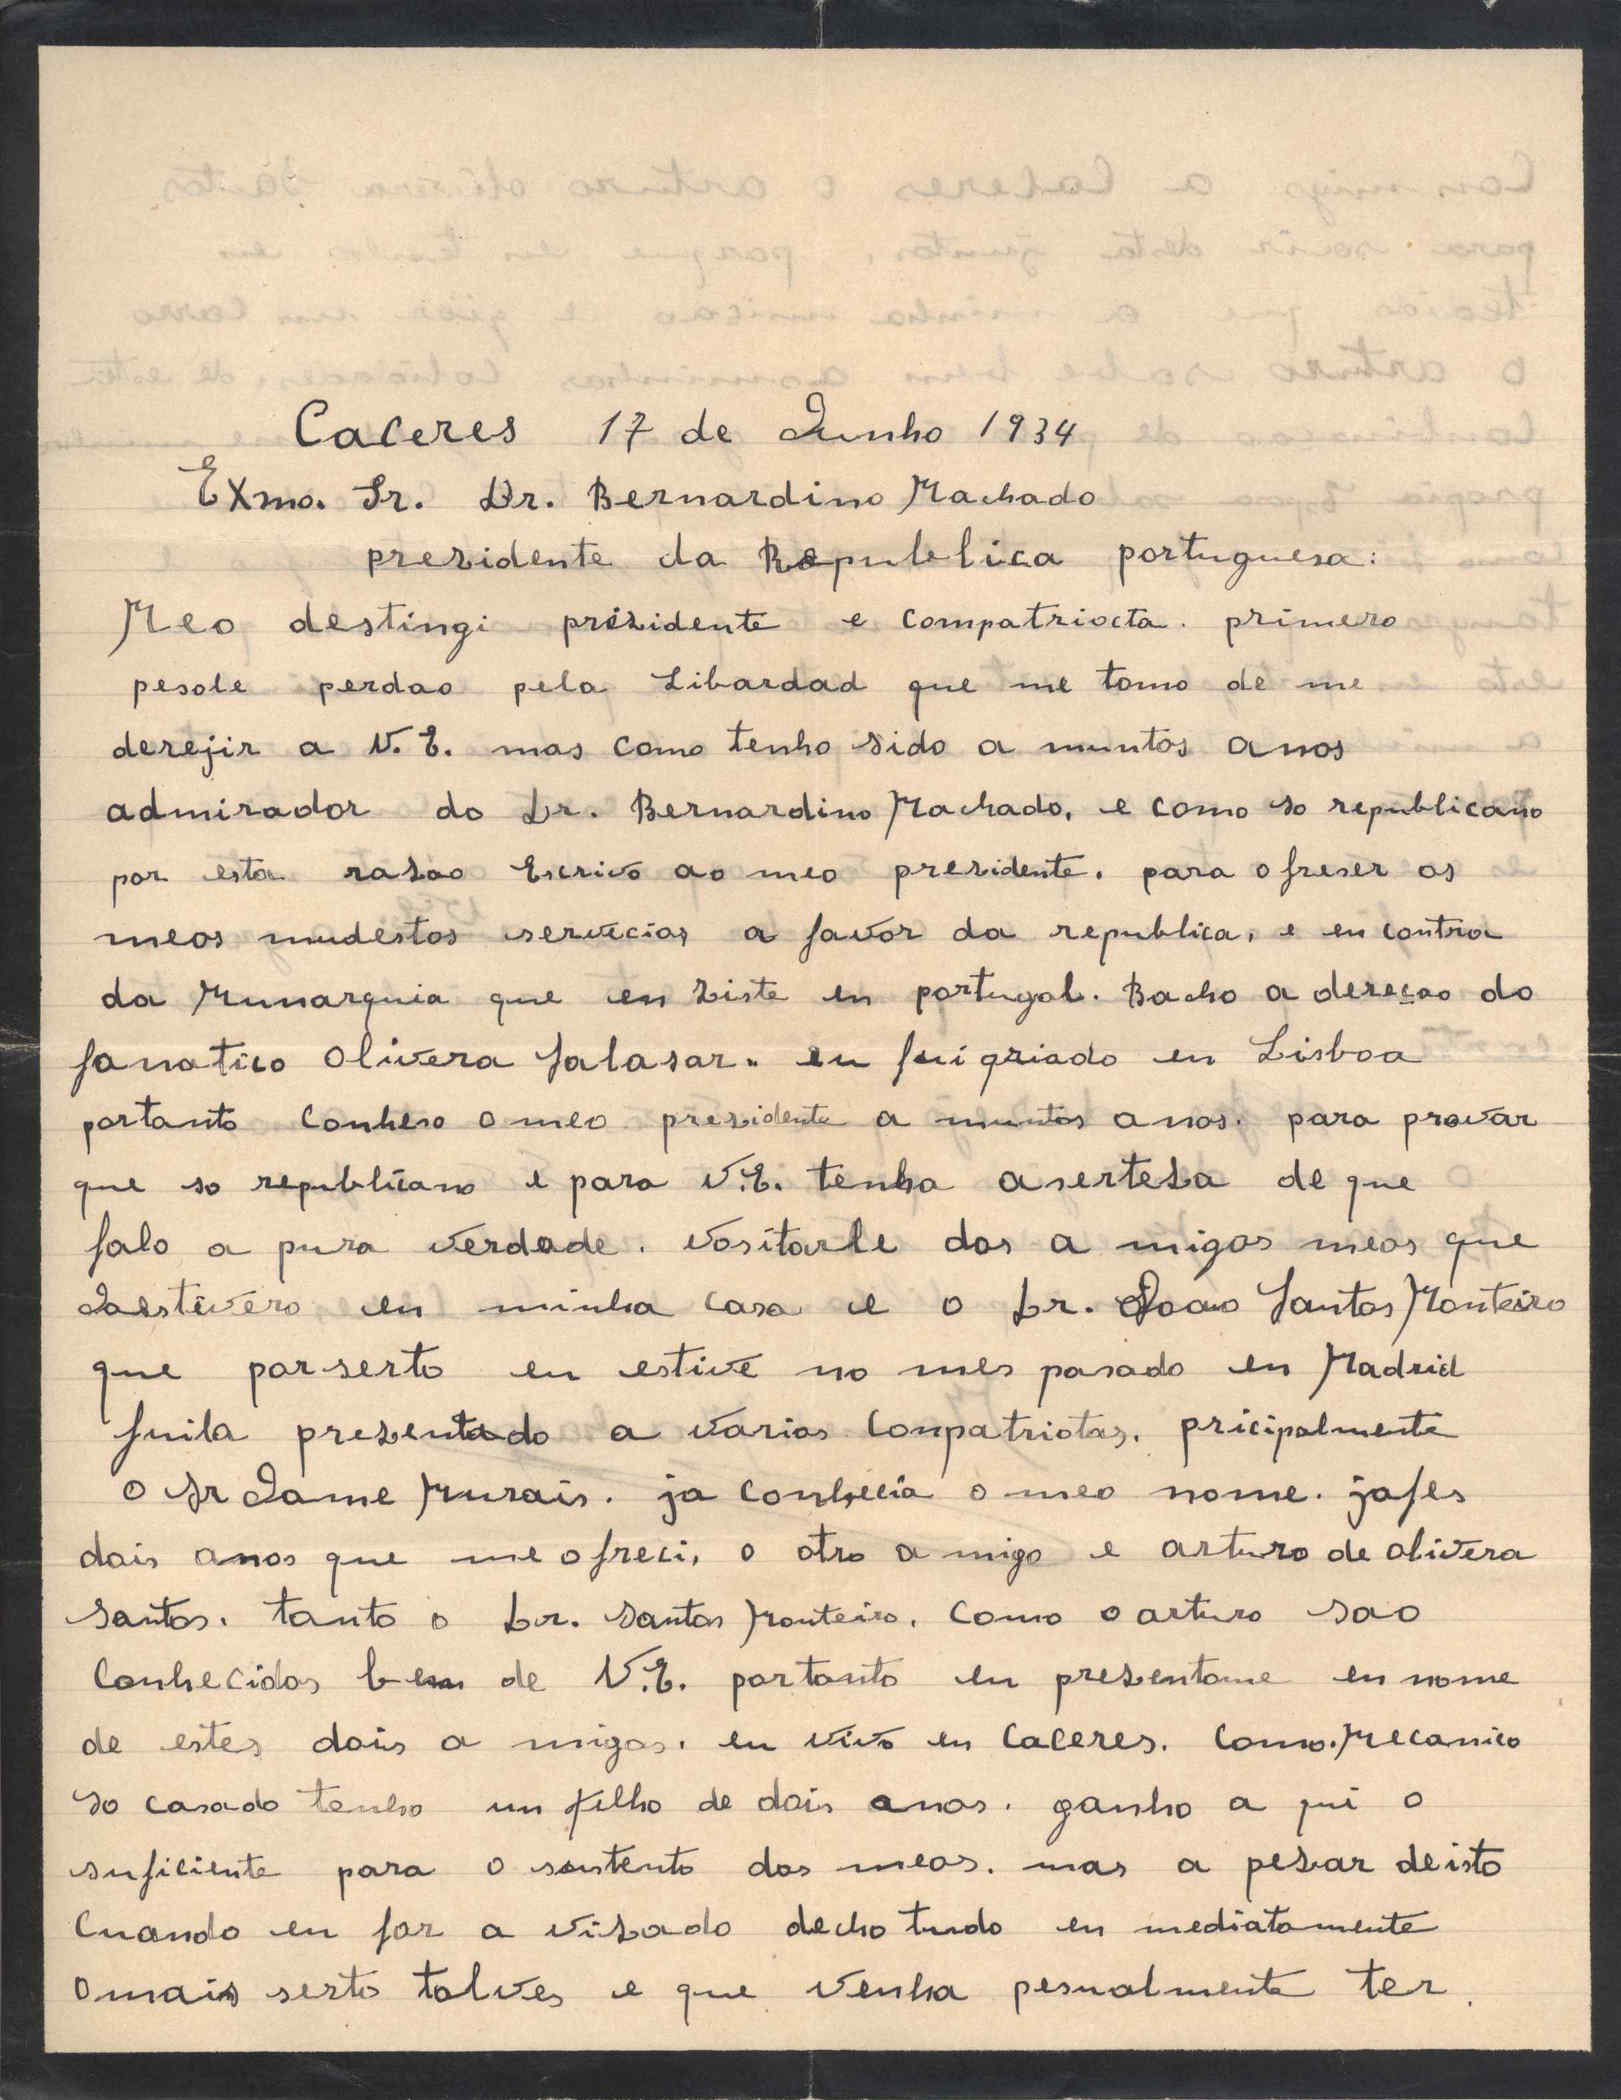 Caceres 17 de Junho 1934
Exmo. Sr. Dr. Bernardino Machado
prezidente da Republica portuguesa:
Meo destingi prezidente e compatriocta. primero
pesole perdao pela Libardad que me tomo de me
derejir a V.E. mas como tenho sido a muntos anos
admirador do Dr. Bernardino Machado, e como so republicano
por esta razao Escrivo ao meo prezidente. para ofreser os
meos mudestos servicios a favor da republica, e en contra
da Munarquia que en ziste en portugal. Bacho a dereçao do
fanatico Olivera Salasar. eu fui griado en Lisboa
portanto Conheso o meo prezidente a muntos anos. para provar
que so republicano e para V.E. tenha aserteza de que
falo a pura verdade. vositarle dos a migos meos que
Jaestivero en minha casa e o Dr. Joao Santos Monteiro
que porserto eu estive no mes pasado en Madrid
fuila prezentado a varios Conpatriotas. pricipalmente
o Sr Jame Murais. ja conhecia o meo nome. jafes
dois anos que me ofreci, o otro a migo e arturo de olivera
santos. tanto o Dr. Santos Monteiro. como o arturo sao
Conhecidos bem de V.E. portanto eu prezentome en nome
de estes dois a migos. eu vivo en Caceres. Como.Mecanico
so casado tenho un filho de dois anos. ganho a qui o
suficiente para o sustento dos meos. mas a pezar deisto
Cuando eu for a vizado decho tudo en mediatamente
omais serto talves e que venha pesualmente ter